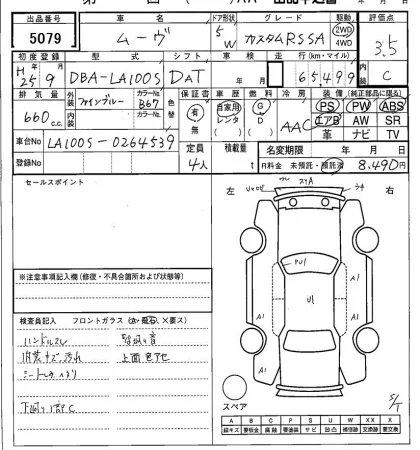 出品番号 車名 ドア形状 グレード 駆動 評価点
5079 ムーヴ 5 W カスタムRSSA 2WD 4WD 3.5
初度登録 型式 シフト 車検 走行(km・マイル) 内装
H25年9月 DBA-LA100S DAT 年 月 65,499 C
排気量 外装 カラーNo. 色替 保証書 車歴 燃料 冷房 装備(純正部品に限る)
660c.c. 内装 ファインブルー B67 有 無 自家用 レンタ G D AAC PS PW ABS
カラーNo. エアB AW SR
革 ナビ TV
車台No LA100S-0264539 定員 積載量 名変期限 年 月 日
登録No 4人 t R料金 未預託・預託済 8,490円
セールスポイント 左 右
※注意事項記入欄(修復・不具合箇所および状態等)
検査員記入 フロントガラス(A>飛石、×要ス)
ハンドルスレ
内装キズ、汚れ 上面色アセ
下回り1部C
A1 A1
U1
A1 A1
S/T
スペア
A B C P S U W X XX ×
線キズ 要板金 腐蝕 要塗装 サビ 凹凸 補修跡 交換跡 要交換